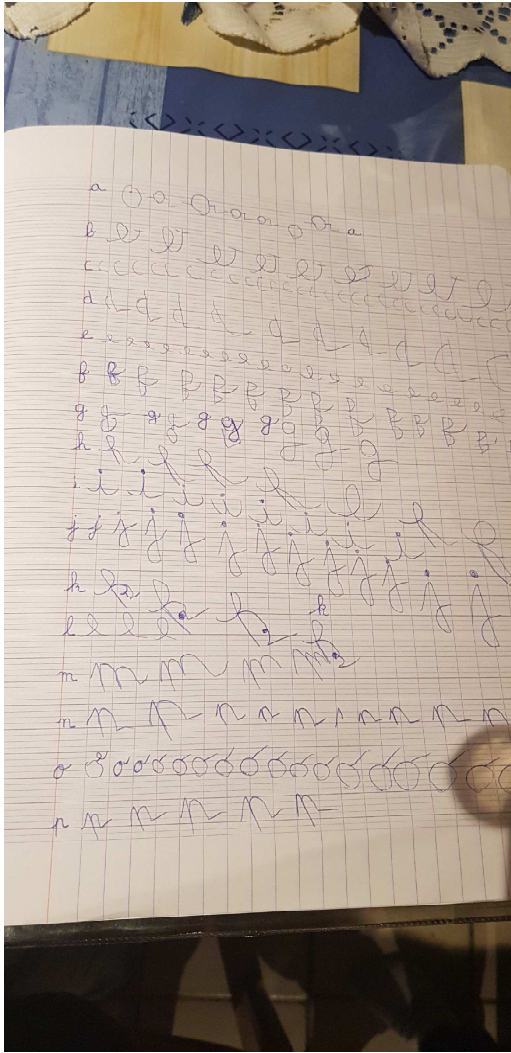 a a a a a a a a a
b b b b b b b b b b
c c c c c c c c c c c c c c c c c c c c c c
d d d d d d d d d d d
e e e e e e e e e e e e e e e e e e
f f f f f f f f f f f f f
g g g g g g g g g g g
h h h h h h h h
i i i i i i i i i
j j j j j j j j j j j j j j
k k k k k
l l l l l
m m m m m
n n n n n n n n n n n
o o o o o o o o o o o o o o o o o o
p p p p p p